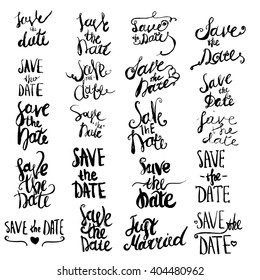 Save
the
date
Save
the
Date
Save
the Date
Save
the
Date
SAVE
the
DATE
Save
the
date
Save
the
Date
Save
the
Date
Save
the
Date
Save
the
Date
Save
the
Date
Save
the
date
Save
the
Date
SAVE
THE
DATE
Save
the
Date
SAVE
-the-
DATE
SAVE the DATE
Save
the
Date
Just
Married
SAVE the
DATE
shutterstock.com · 404480962